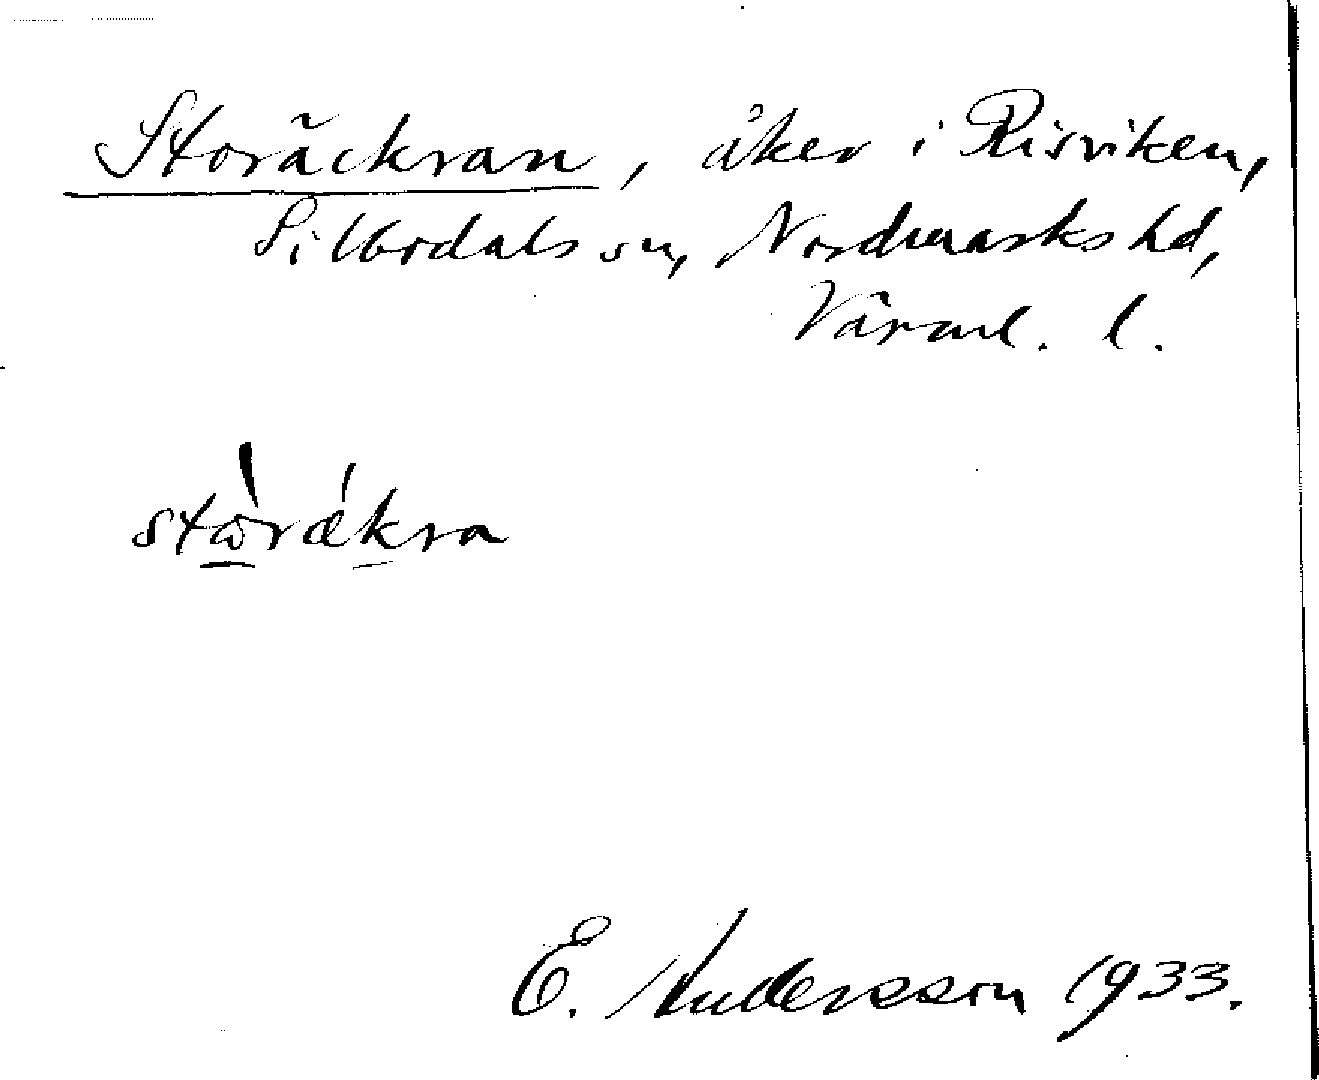 Storäckran, åker i Risviken,
Silbodals sn, Nordmarks hd,
Värml. l.
stὼrǽkra
E. Andersson 1933.